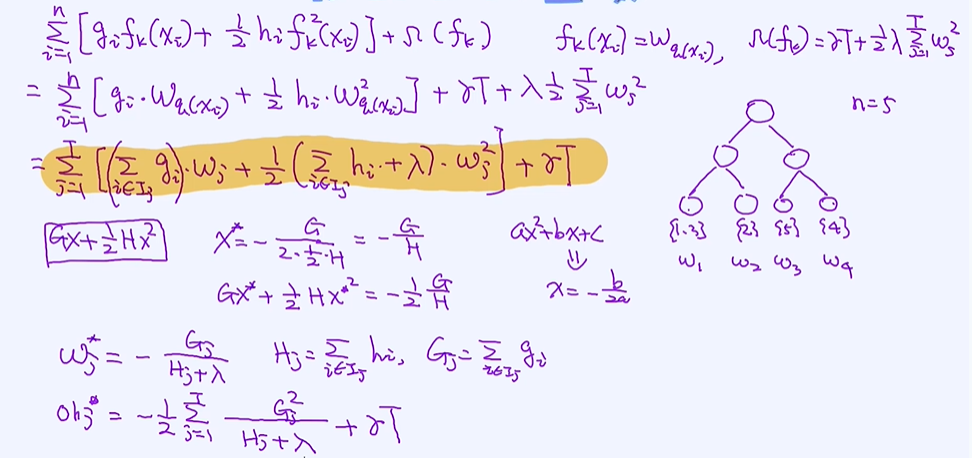 ∑_{i=1}^{n} [g_i f_k(x_i) + ½ h_i f_k²(x_i)] + Ω(f_k)    f_k(x_i) = w_{q(x_i)},    Ω(f_k) = γT + ½ λ ∑_{j=1}^{T} w_j²
= ∑_{i=1}^{n} [g_i · w_{q(x_i)} + ½ h_i · w²_{q(x_i)}] + γT + λ ½ ∑_{j=1}^{T} w_j²    n=5
= ∑_{j=1}^{T} [(∑_{i∈I_j} g_i) · w_j + ½ (∑_{i∈I_j} h_i + λ) · w_j²] + γT
{1,3} {2} {5} {4}
w_1 w_2 w_3 w_4
Gx + ½ Hx²    x* = - G / (2 · ½ · H) = - G/H    ax² + bx + c
⇓
Gx* + ½ Hx*² = - ½ G/H    x = - b/2a
w_j* = - G_j / (H_j + λ)    H_j = ∑_{i∈I_j} h_i,    G_j = ∑_{i∈I_j} g_i
obj* = - ½ ∑_{j=1}^{T} G_j² / (H_j + λ) + γT